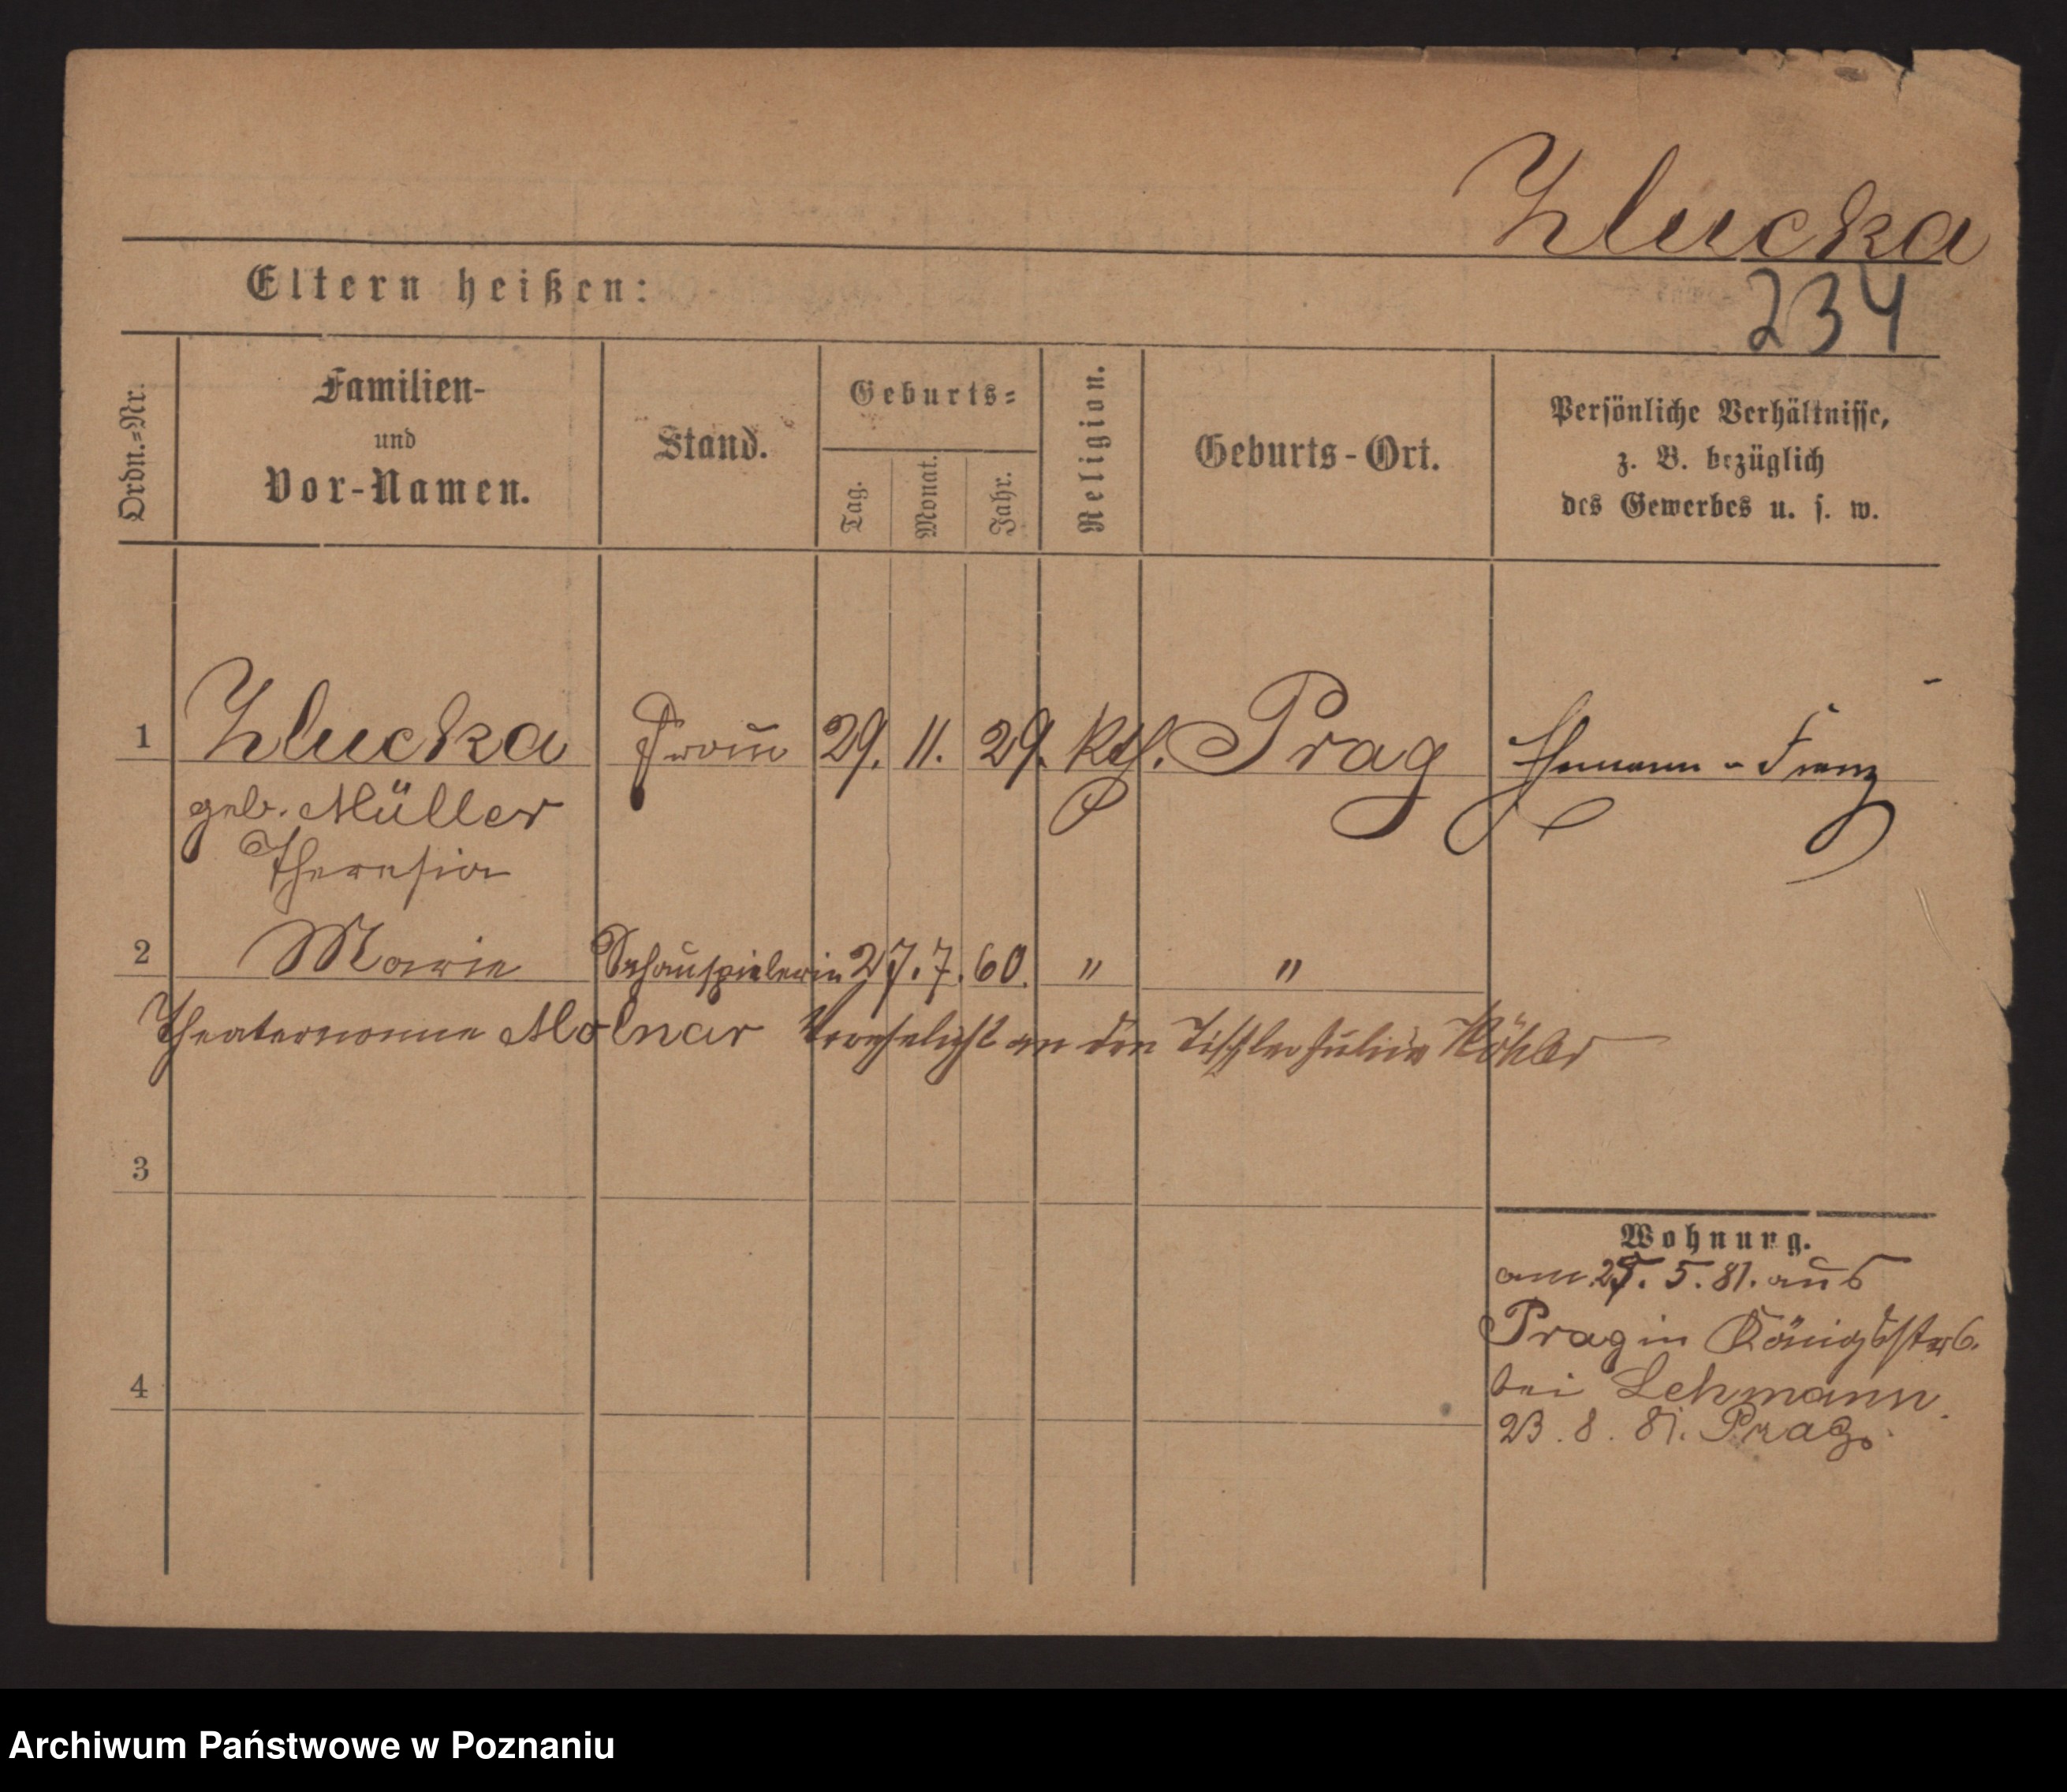 Zlucka
Eltern heißen:
234
Ordn.=Nr.
Familien-
und
Vor-Namen.
Stand.
Geburts=
Tag.
Monat.
Jahr.
Religion.
Geburts-Ort.
Persönliche Verhältnisse,
z. B. bezüglich
des Gewerbes u. s. w.
1 Zlucka Frau 29. 11. 29. kth. Prag Franz
geb. Müller
Theresia
2 Marie Schauspielerin 27. 7. 60. " "
Theatername Molnar Verehelicht an den Tischler Julius Köhler
3
Wohnung.
am 25. 5. 81. aus
Prag in Königsstr 6.
bei Lehmann.
4
23. 8. 81. Prag.
Archiwum Państwowe w Poznaniu